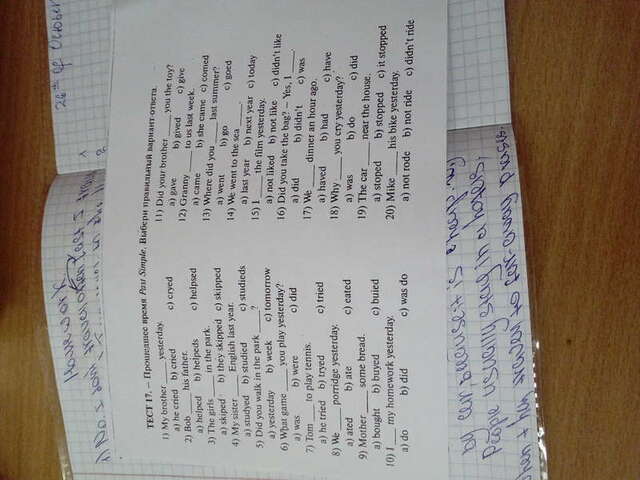 26th of October
Home work
ТЕСТ 17. – Прошедшее время Past Simple. Выбери правильный вариант ответа.
1) My brother ____ yesterday.
a) he cried b) cried c) cryed
2) Bob ____ his father.
a) helped b) helpeds c) helpsed
3) The girls ____ in the park.
a) skiped b) they skipped c) skipped
4) My sister ____ English last year.
a) studyed b) studied c) studieds
5) Did you walk in the park ____?
a) yesterday b) week c) tomorrow
6) What game ____ you play yesterday?
a) was b) were c) did
7) Tom ____ to play tennis.
a) he tried b) tryed c) tried
8) We ____ porridge yesterday.
a) ated b) ate c) eated
9) Mother ____ some bread.
a) bought b) buyed c) buied
10) I ____ my homework yesterday.
a) do b) did c) was do
11) Did your brother ____ you the toy?
a) gave b) gived c) give
12) Granny ____ to us last week.
a) came b) she came c) comed
13) Where did you ____ last summer?
a) went b) go c) goed
14) We went to the sea ____.
a) last year b) next year c) today
15) I ____ the film yesterday.
a) not liked b) not like c) didn't like
16) Did you take the bag? – Yes, I ____.
a) did b) didn't c) was
17) We ____ dinner an hour ago.
a) haved b) had c) have
18) Why ____ you cry yesterday?
a) was b) do c) did
19) The car ____ near the house.
a) stoped b) stopped c) it stopped
20) Mike ____ his bike yesterday.
a) not rode b) not ride c) didn't ride
by car because it is cheap
People usually stay in a hotels,